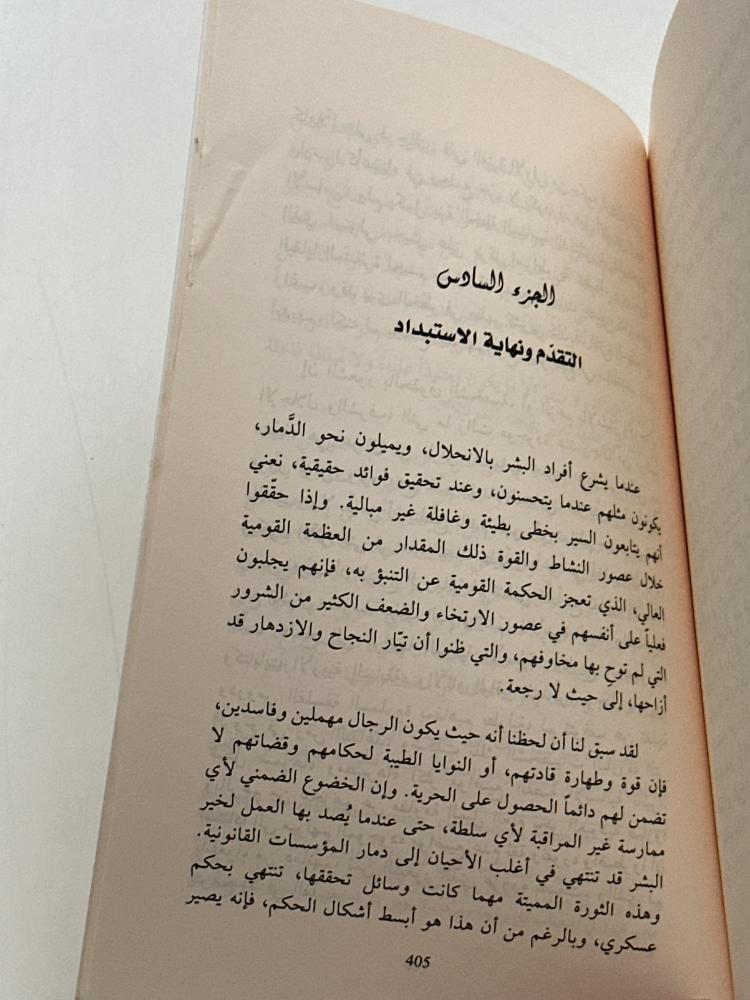 الجزء السادس
التقدّم ونهاية الاستبداد
عندما يشرع أفراد البشر بالانحلال، ويميلون نحو الدَّمار،
يكونون مثلهم عندما يتحسنون، وعند تحقيق فوائد حقيقية، نعني
أنهم يتابعون السير بخطى بطيئة وغافلة غير مبالية. وإذا حقّقوا
خلال عصور النشاط والقوة ذلك المقدار من العظمة القومية
العالي، الذي تعجز الحكمة القومية عن التنبؤ به، فإنهم يجلبون
فعلياً على أنفسهم في عصور الارتخاء والضعف الكثير من الشرور
التي لم توحِ بها مخاوفهم، والتي ظنوا أن تيّار النجاح والازدهار قد
أزاحها، إلى حيث لا رجعة.
لقد سبق لنا أن لحظنا أنه حيث يكون الرجال مهملين وفاسدين،
فإن قوة وطهارة قادتهم، أو النوايا الطيبة لحكامهم وقضاتهم لا
تضمن لهم دائماً الحصول على الحرية. وإن الخضوع الضمني لأي
ممارسة غير المراقبة لأي سلطة، حتى عندما يُصد بها العمل لخير
البشر قد تنتهي في أغلب الأحيان إلى دمار المؤسسات القانونية.
وهذه الثورة المميتة مهما كانت وسائل تحققها، تنتهي بحكم
عسكري، وبالرغم من أن هذا هو أبسط أشكال الحكم، فإنه يصير
405